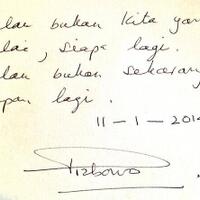 lau bukan kita yan
lai, siapa lagi.
lau bukan sekaran
pan lagi.
11-1-201